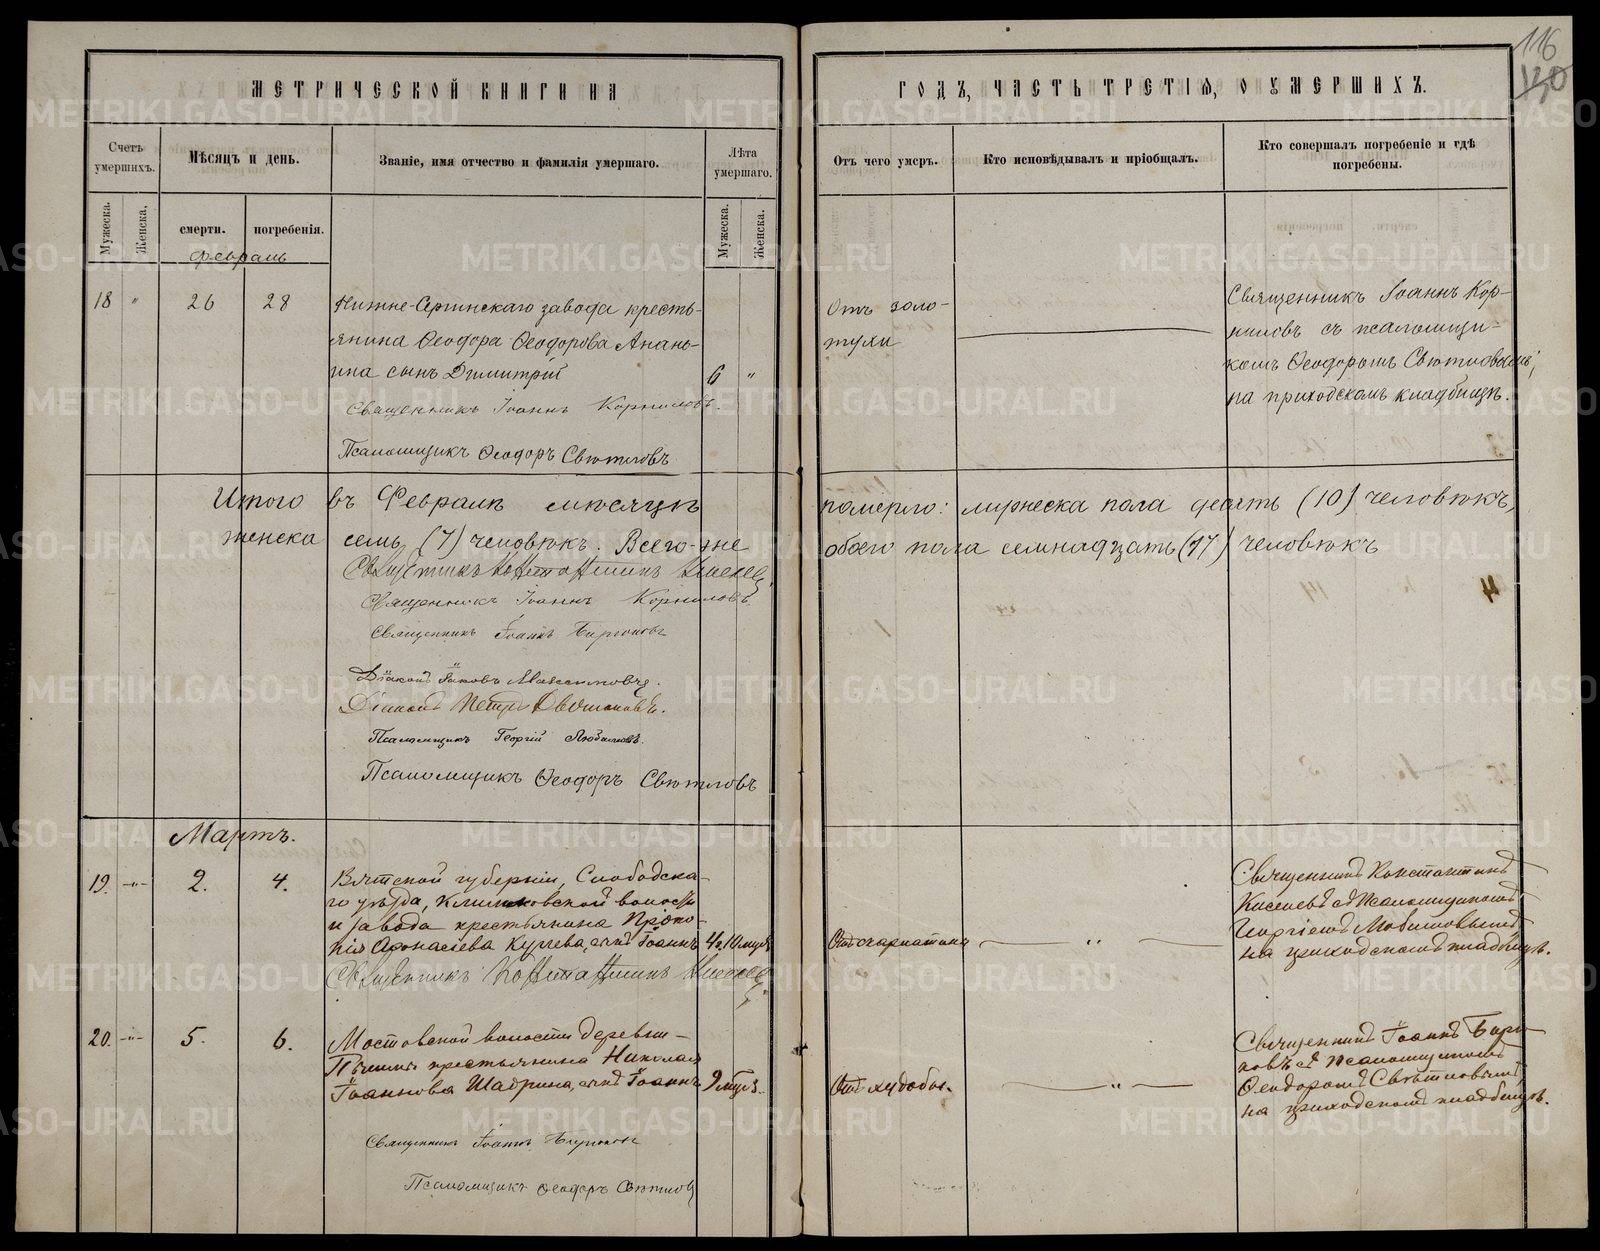 116
130
МЕТРИЧЕСКОЙ КНИГИ НА
ГОДЪ, ЧАСТЬ ТРЕТІЯ, О УМЕРШИХЪ.
Счетъ умершихъ.
Мѣсяцъ и день.
Званіе, имя отчество и фамилія умершаго.
Лѣта умершаго.
Отъ чего умеръ.
Кто исповѣдывалъ и пріобщалъ.
Кто совершалъ погребеніе и гдѣ погребены.
Мужеска.
Женска.
смерти.
погребенія.
Мужеска.
Женска.
Февраль
18 " 26 28
Нижне-Сергинскаго завода кресть-
янина Ѳеодора Ѳеодорова Анань-
ина сынъ Димитрій
6 "
Отъ золо-
тухи
Священникъ Іоаннъ Кор-
ниловъ съ псаломщи-
комъ Ѳеодоромъ Свѣтловымъ,
на приходскомъ кладбищѣ.
Священникъ Іоаннъ Корниловъ.
Псаломщикъ Ѳеодоръ Свѣтловъ
Итого въ Февралѣ мѣсяцѣ померло: мужеска пола десять (10) человѣкъ,
женска семь (7) человѣкъ. Всего-же обоего пола семнадцать (17) человѣкъ
Священникъ Константинъ Киселевъ
Священникъ Іоаннъ Корниловъ.
Священникъ Іоаннъ Бирюковъ
Діаконъ Іаковъ Максимовъ.
Діаконъ Петръ
Псаломщикъ Георгій Любимовъ.
Псаломщикъ Ѳеодоръ Свѣтловъ
Мартъ.
19. -"- 2. 4.
Вятской губерніи, Слободска-
го уѣзда, Климковской волости
и завода крестьянина Проко-
пія Аѳонасіева сынъ Іоаннъ
4 г. 10 мцев
Отъ скарлатины
"
Священникъ Константинъ
Киселевъ съ Псаломщикомъ
Георгіемъ Любимовымъ
на приходскомъ кладбищѣ.
Священникъ Константинъ Киселевъ
20. -"- 5. 6.
Мостовской волости деревни
крестьянина Николая
Іоаннова Шадрина, сынъ Іоаннъ
9 мцев.
Отъ худобы.
"
Священникъ Іоаннъ Бирю-
ковъ съ Псаломщикомъ
Ѳеодоромъ Свѣтловымъ,
на приходскомъ кладбищѣ.
Священникъ Іоаннъ Бирюковъ
Псаломщикъ Ѳеодоръ Свѣтловъ
METRIKI.GASO-URAL.RU